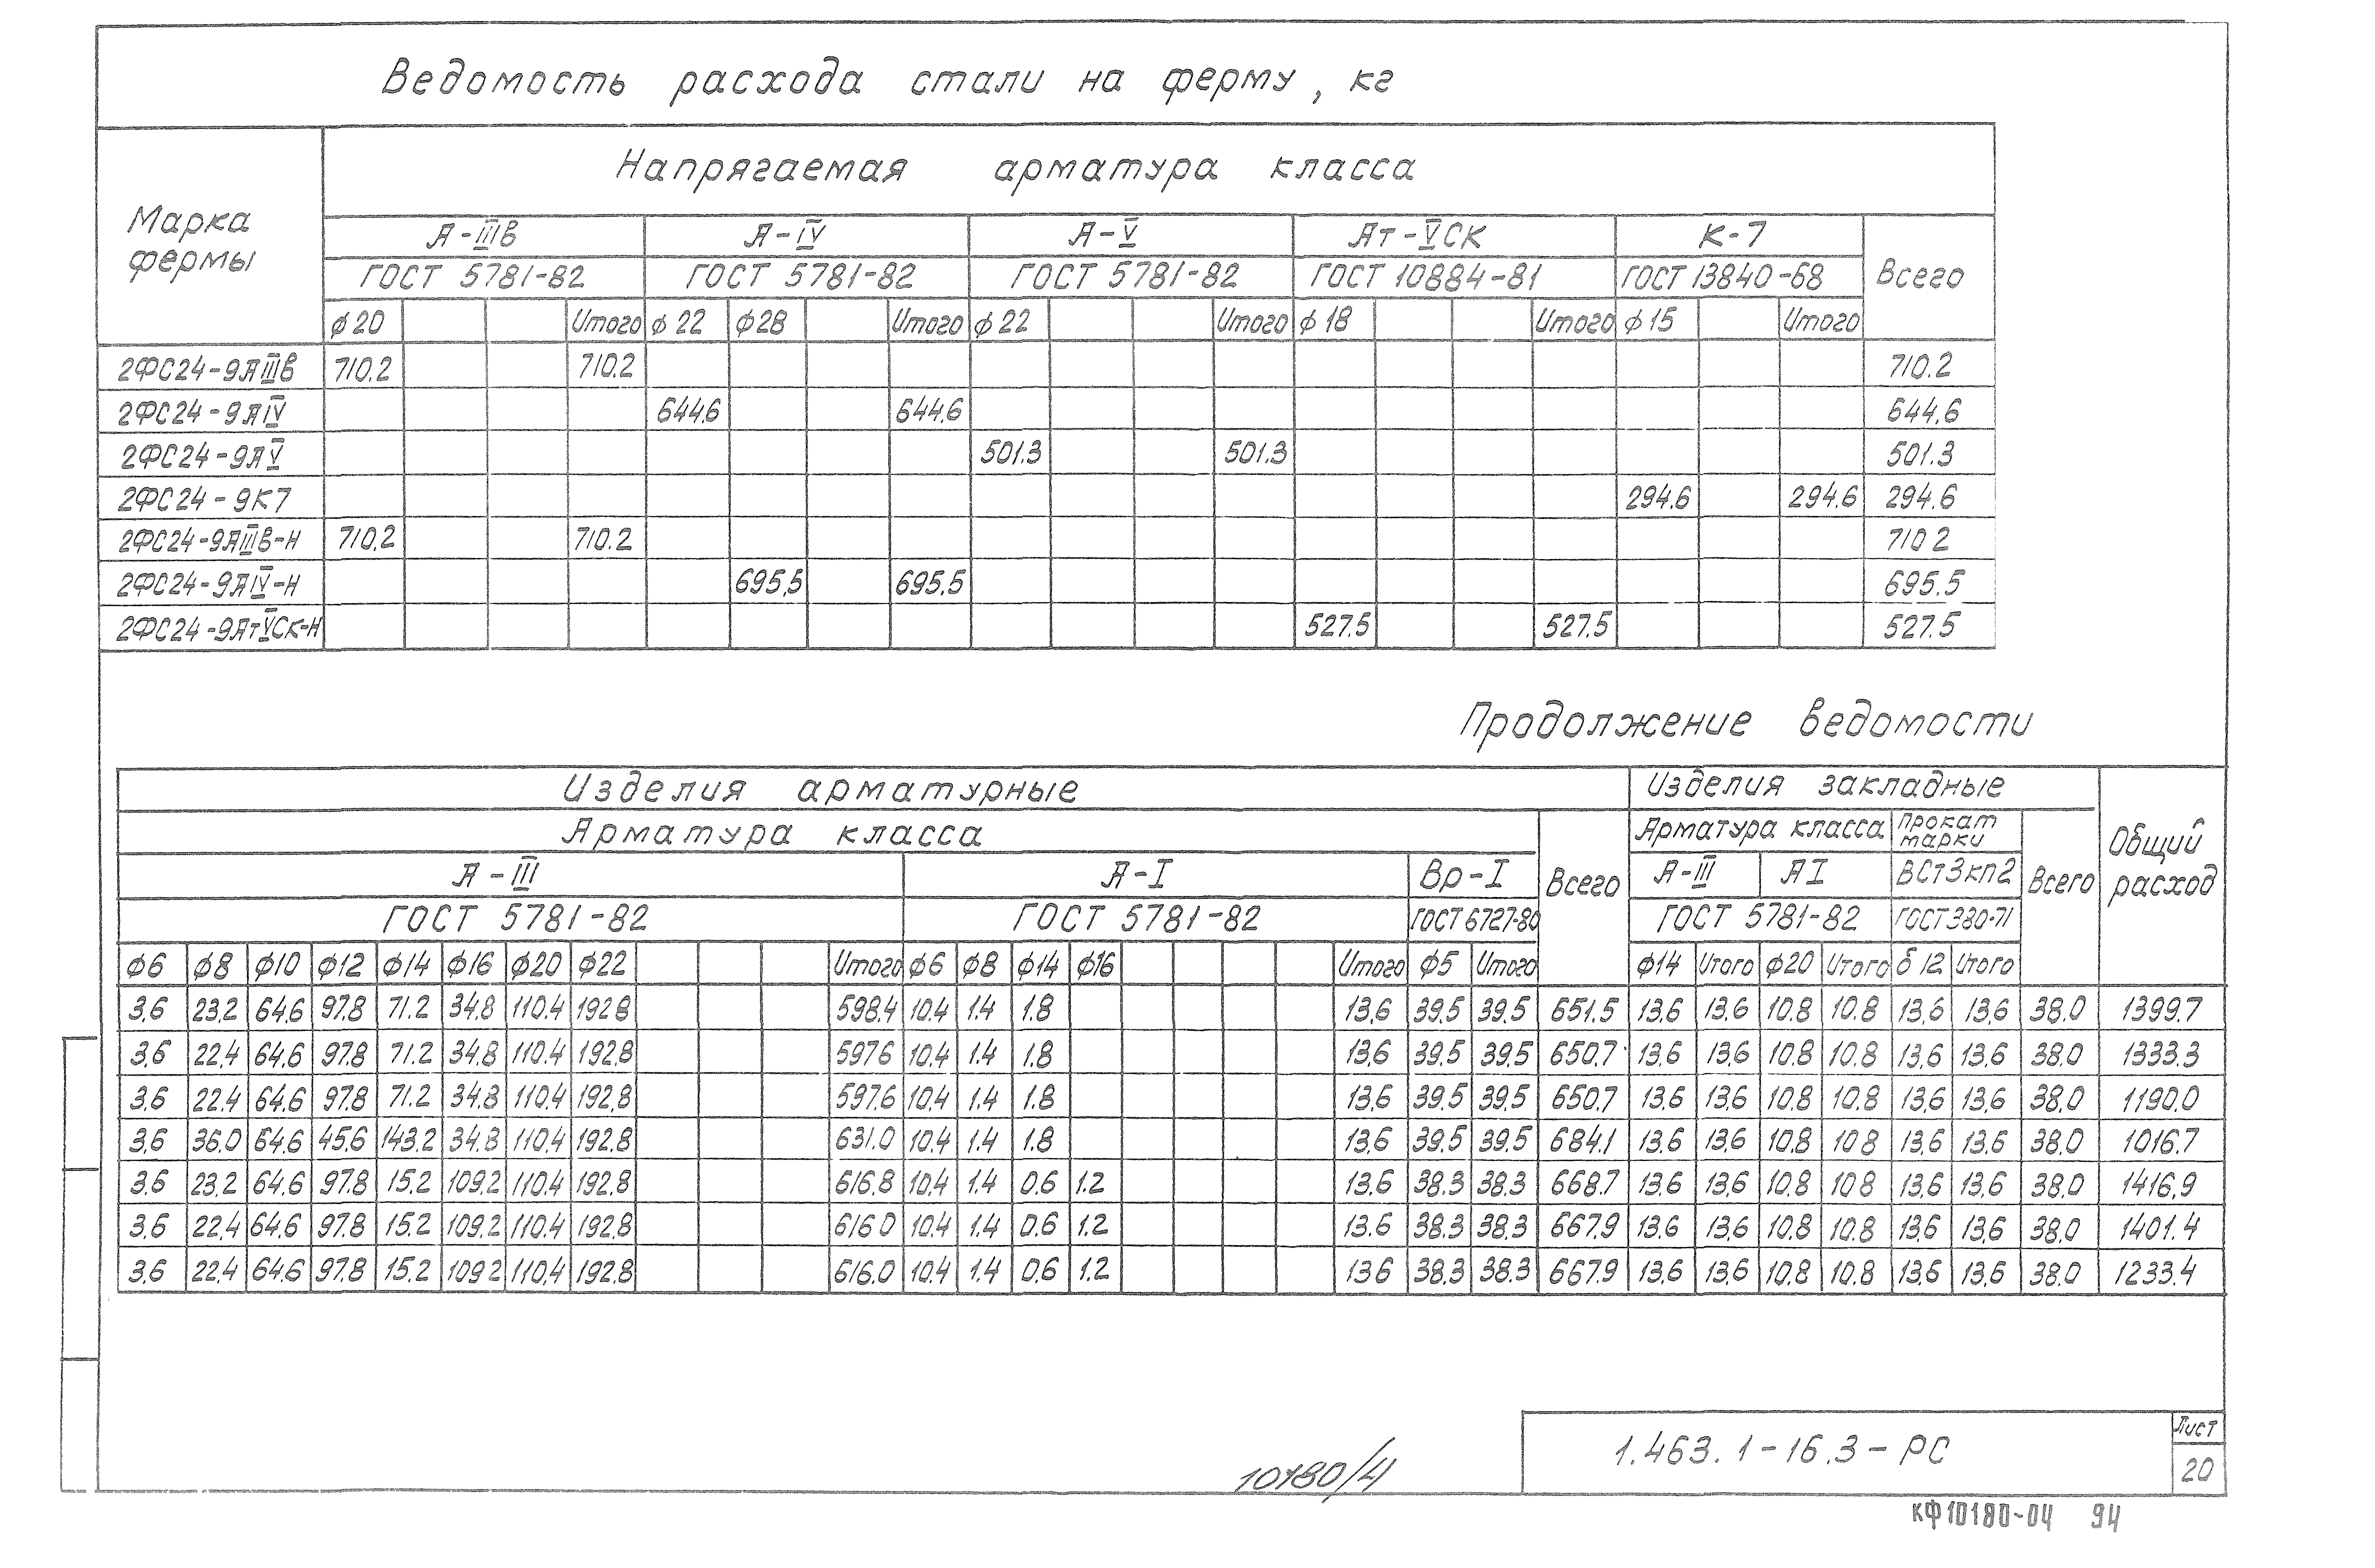 Ведомость расхода стали на ферму, кг
Марка фермы
Напрягаемая арматура класса
А-IIIв А-IV А-V Ат-VСК К-7 Всего
ГОСТ 5781-82 ГОСТ 5781-82 ГОСТ 5781-82 ГОСТ 10884-81 ГОСТ 13840-68
ф20 Итого ф22 ф28 Итого ф22 Итого ф18 Итого ф15 Итого
2ФС24-9АIIIв 710.2 710.2 710.2
2ФС24-9АIV 644.6 644.6 644.6
2ФС24-9АV 501.3 501.3 501.3
2ФС24-9К7 294.6 294.6 294.6
2ФС24-9АIIIв-Н 710.2 710.2 710 2
2ФС24-9АIV-Н 695,5 695.5 695.5
2ФС24-9АтVСК-Н 527.5 527.5 527.5
Продолжение ведомости
Изделия арматурные Изделия закладные Общий расход
Арматура класса Всего Арматура класса Прокат марки Всего
А-III А-I Вр-I А-III АI ВСт3кп2
ГОСТ 5781-82 ГОСТ 5781-82 ГОСТ 6727-80 ГОСТ 5781-82 ГОСТ 380-71
ф6 ф8 ф10 ф12 ф14 ф16 ф20 ф22 Итого ф6 ф8 ф14 ф16 Итого ф5 Итого ф14 Итого ф20 Итого δ12 Итого
3.6 23.2 64.6 97.8 71.2 34.8 110.4 192 8 598.4 10.4 1.4 1.8 13.6 39.5 39.5 651.5 13.6 13.6 10.8 10.8 13.6 13.6 38.0 1399.7
3.6 22.4 64.6 97.8 71.2 34.8 110.4 192.8 597 6 10.4 1.4 1.8 13.6 39.5 39.5 650.7 13.6 13.6 10.8 10.8 13.6 13.6 38.0 1333.3
3.6 22.4 64.6 97.8 71.2 34.8 110.4 192.8 597.6 10.4 1.4 1.8 13.6 39.5 39.5 650.7 13.6 13.6 10.8 10.8 13.6 13.6 38.0 1190.0
3.6 36.0 64.6 45.6 143.2 34.8 110.4 192.8 631.0 10.4 1.4 1.8 13.6 39.5 39.5 684.1 13.6 13.6 10.8 10 8 13.6 13.6 38.0 1016.7
3.6 23.2 64.6 97.8 15.2 109.2 110.4 192.8 616.8 10.4 1.4 0.6 1.2 13.6 38.3 38.3 668.7 13.6 13.6 10.8 10 8 13.6 13.6 38.0 1416.9
3.6 22.4 64.6 97.8 15.2 109.2 110.4 192.8 616 0 10.4 1.4 0.6 1.2 13.6 38.3 38.3 667.9 13.6 13.6 10.8 10.8 13.6 13.6 38.0 1401.4
3.6 22.4 64.6 97.8 15.2 109 2 110.4 192.8 616.0 10.4 1.4 0.6 1.2 13 6 38.3 38.3 667.9 13.6 13.6 10.8 10.8 13.6 13.6 38.0 1233.4
1.463.1-16.3-РС
Лист
20
10180/4
КФ10180-04 94